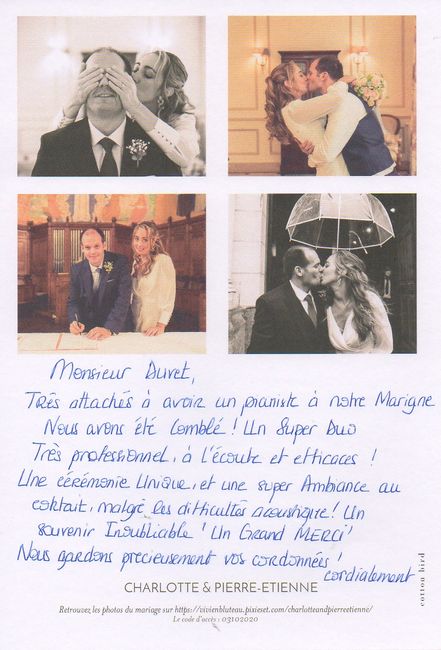 Monsieur Duvet,
Très attachés à avoir un pianiste à notre Marigne
Nous avons été comblé ! Un Super Duo
Très professionnel, à l'écoute et efficaces !
Une cérémonie Unique, et une super Ambiance au
coktait, malgré les difficultés acoustique ! Un
souvenir Inoubliable ! Un Grand MERCI !
Nous gardons precieusement vos cordonnées !
cordialement
cotton bird
CHARLOTTE & PIERRE-ETIENNE
Retrouvez les photos du mariage sur https://vivienbluteau.pixieset.com/charlotteandpierreetienne/
Le code d'accès : 03102020